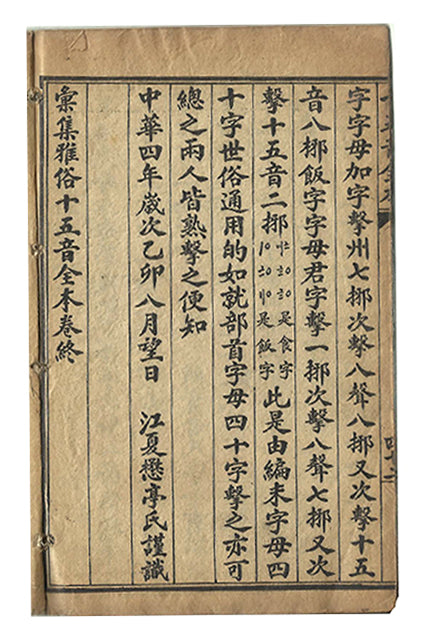 字字母加字擊州七挷次擊八聲八挷又次擊十五
音八挷飯字字母君字擊一挷次擊八聲七挷又次
擊十五音二挷 是食字 是飯字 此是由編末字母四
十字世俗通用的如就部首字母四十字擊之亦可
總之兩人皆熟擊之便知
中華四年歲次乙卯八月望日 江夏懋亭氏謹識
彙集雅俗十五音全本卷終